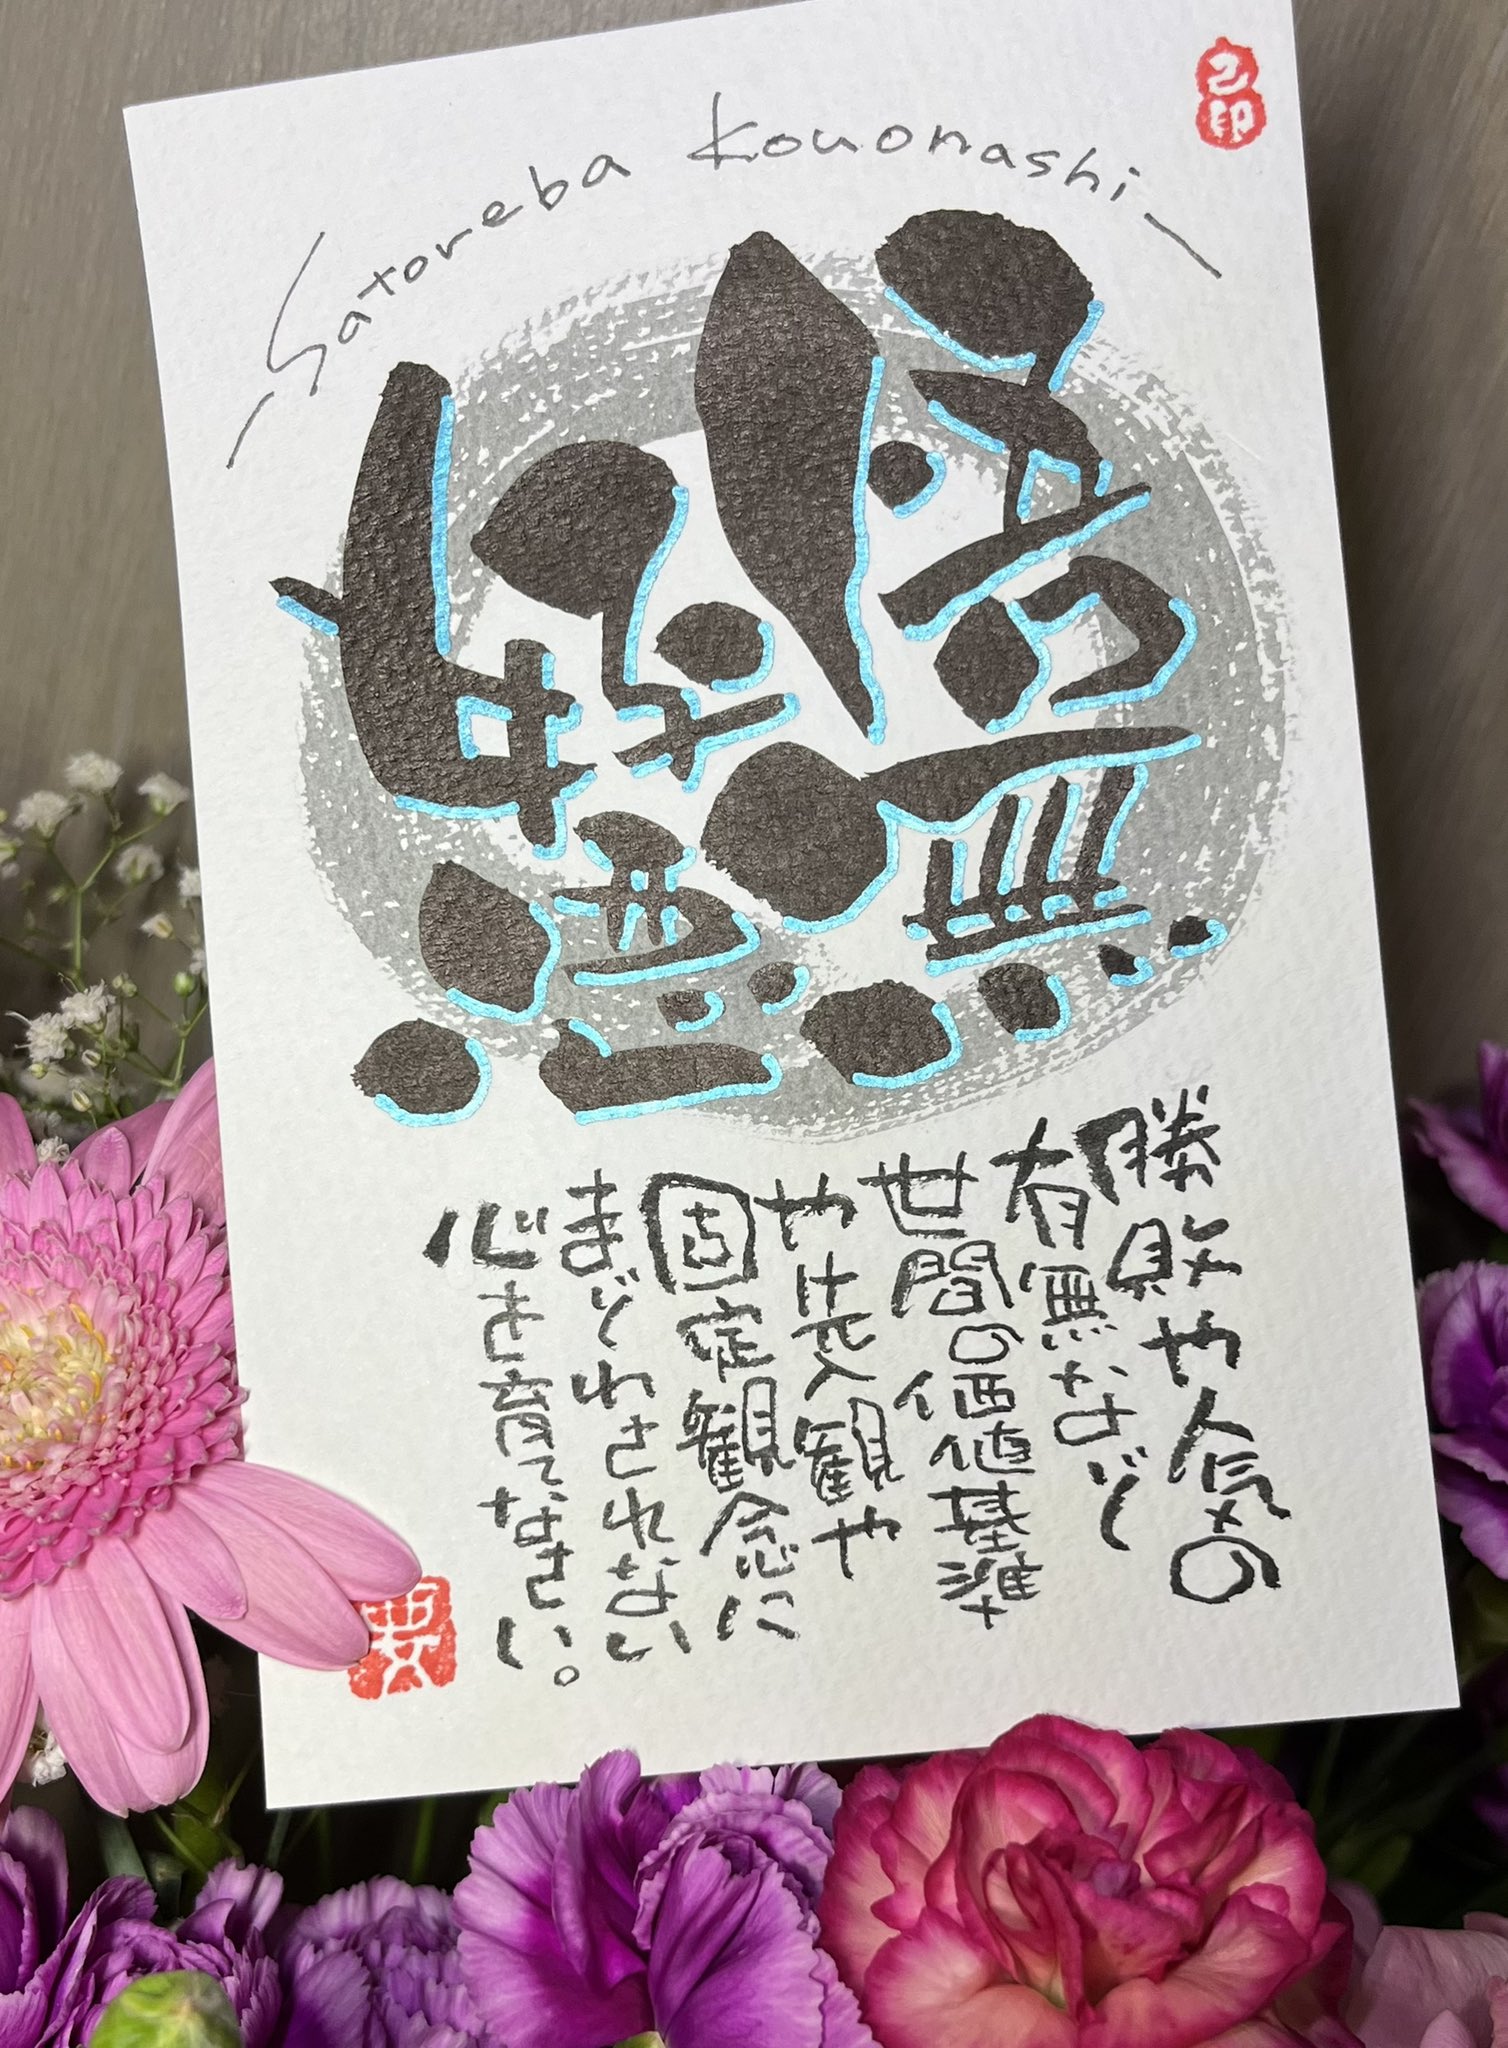 Satoreba kouonashi
悟無
好悪
勝敗や人気の
有無など
世間の価値基準
や先入観や
固定観念に
まどわされない
心を育てなさい。